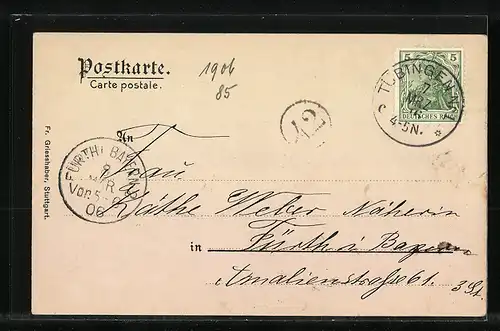 Postkarte.
Carte postale.
1906
85
5 5
DEUTSCHES REICH
TÜBINGEN
7
MRZ
4-5N.
12
An
Frau
Käthe Weber Näherin
in Fürth i Bayern
Amalienstraße 61.
3 St.
FÜRTH BAYERN
8
MR
Vor.
06
Fr. Griesshaber, Stuttgart.